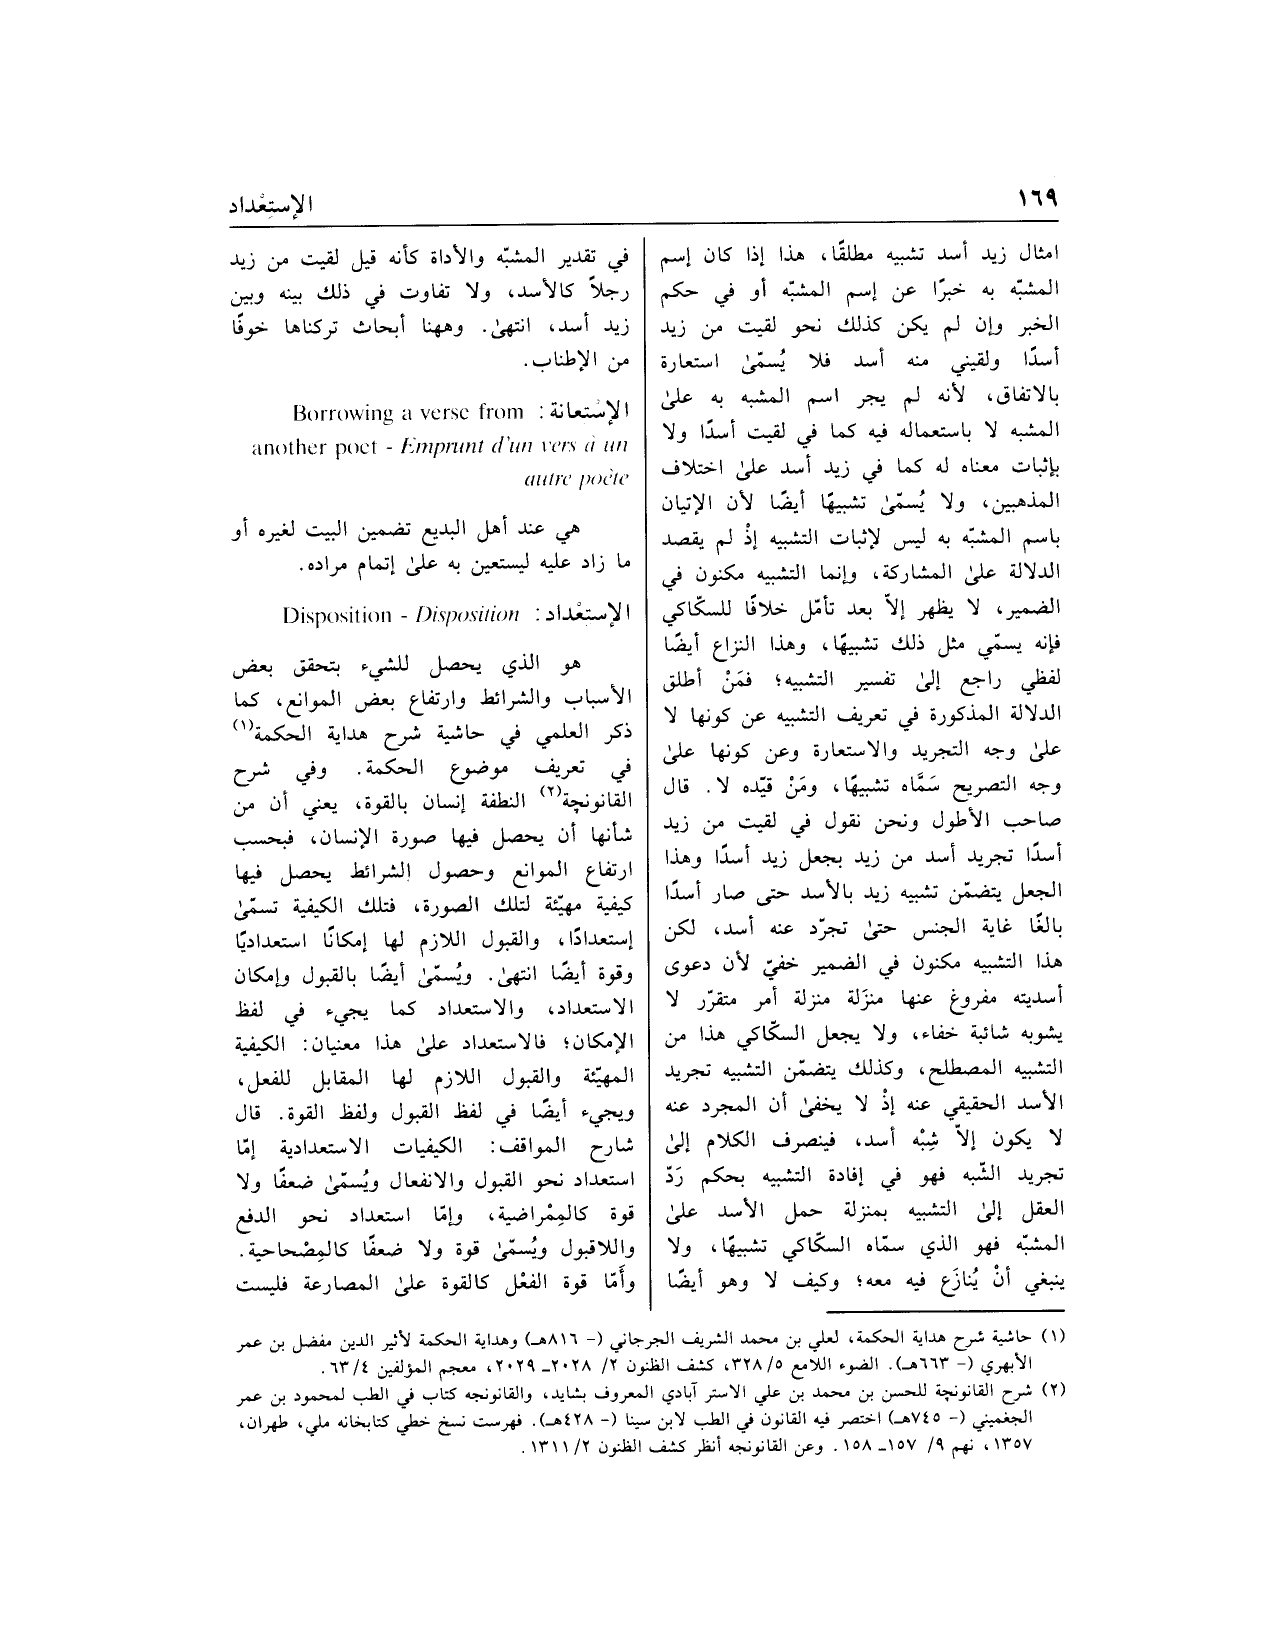 ١٦٩
الإستِعْداد
امثال زيد أسد تشبيه مطلقًا، هذا إذا كان إسم
المشبّه به خبرًا عن إسم المشبّه أو في حكم
الخبر وإن لم يكن كذلك نحو لقيت من زيد
أسدًا ولقيني منه أسد فلا يُسمّىٰ استعارة
بالاتفاق، لأنه لم يجر اسم المشبه به علىٰ
المشبه لا باستعماله فيه كما في لقيت أسدًا ولا
بإثبات معناه له كما في زيد أسد علىٰ اختلاف
المذهبين، ولا يُسمّىٰ تشبيهًا أيضًا لأن الإتيان
باسم المشبّه به ليس لإثبات التشبيه إذْ لم يقصد
الدلالة علىٰ المشاركة، وإنما التشبيه مكنون في
الضمير، لا يظهر إلاّ بعد تأمّل خلافًا للسكّاكي
فإنه يسمّي مثل ذلك تشبيهًا، وهذا النزاع أيضًا
لفظي راجع إلىٰ تفسير التشبيه؛ فمَنْ أطلق
الدلالة المذكورة في تعريف التشبيه عن كونها لا
علىٰ وجه التجريد والاستعارة وعن كونها علىٰ
وجه التصريح سَمَّاه تشبيهًا، ومَنْ قيّده لا. قال
صاحب الأطول ونحن نقول في لقيت من زيد
أسدًا تجريد أسد من زيد بجعل زيد أسدًا وهذا
الجعل يتضمّن تشبيه زيد بالأسد حتى صار أسدًا
بالغًا غاية الجنس حتىٰ تجرّد عنه أسد، لكن
هذا التشبيه مكنون في الضمير خفيّ لأن دعوى
أسديته مفروغ عنها منزَلة منزلة أمر متقرّر لا
يشوبه شائبة خفاء، ولا يجعل السكّاكي هذا من
التشبيه المصطلح، وكذلك يتضمّن التشبيه تجريد
الأسد الحقيقي عنه إذْ لا يخفىٰ أن المجرد عنه
لا يكون إلاّ شِبْه أسد، فينصرف الكلام إلىٰ
تجريد الشّبه فهو في إفادة التشبيه بحكم رَدّ
العقل إلىٰ التشبيه بمنزلة حمل الأسد علىٰ
المشبّه فهو الذي سمّاه السكّاكي تشبيهًا، ولا
ينبغي أنْ يُنازَع فيه معه؛ وكيف لا وهو أيضًا
في تقدير المشبّه والأداة كأنه قيل لقيت من زيد
رجلاً كالأسد، ولا تفاوت في ذلك بينه وبين
زيد أسد، انتهىٰ. وههنا أبحاث تركناها خوفًا
من الإطناب.
الإسْتعانة : Borrowing a verse from
another poet - Emprunt d'un vers à un
autre poète
هي عند أهل البديع تضمين البيت لغيره أو
ما زاد عليه ليستعين به علىٰ إتمام مراده.
الإستعْداد: Disposition - Disposition
هو الذي يحصل للشيء بتحقق بعض
الأسباب والشرائط وارتفاع بعض الموانع، كما
ذكر العلمي في حاشية شرح هداية الحكمة(١)
في تعريف موضوع الحكمة. وفي شرح
القانونچة(٢) النطفة إنسان بالقوة، يعني أن من
شأنها أن يحصل فيها صورة الإنسان، فبحسب
ارتفاع الموانع وحصول الشرائط يحصل فيها
كيفية مهيّئة لتلك الصورة، فتلك الكيفية تسمّىٰ
إستعدادًا، والقبول اللازم لها إمكانًا استعداديًا
وقوة أيضًا انتهىٰ. ويُسمّىٰ أيضًا بالقبول وإمكان
الاستعداد، والاستعداد كما يجيء في لفظ
الإمكان؛ فالاستعداد علىٰ هذا معنيان: الكيفية
المهيّئة والقبول اللازم لها المقابل للفعل،
ويجيء أيضًا في لفظ القبول ولفظ القوة. قال
شارح المواقف: الكيفيات الاستعدادية إمّا
استعداد نحو القبول والانفعال ويُسمّىٰ ضعفًا ولا
قوة كالمِمْراضية، وإمّا استعداد نحو الدفع
واللاقبول ويُسمّىٰ قوة ولا ضعفًا كالمِصْحاحية.
وأَمّا قوة الفعْل كالقوة علىٰ المصارعة فليست
(١) حاشية شرح هداية الحكمة، لعلي بن محمد الشريف الجرجاني (- ٨١٦هـ) وهداية الحكمة لأثير الدين مفضل بن عمر
الأبهري (- ٦٦٣هـ). الضوء اللامع ٥/ ٣٢٨، كشف الظنون ٢/ ٢٠٢٨ـ ٢٠٢٩، معجم المؤلفين ٤/ ٦٣.
(٢) شرح القانونچة للحسن بن محمد بن علي الاستر آبادي المعروف بشايد، والقانونجه كتاب في الطب لمحمود بن عمر
الجغميني (- ٧٤٥هـ) اختصر فيه القانون في الطب لابن سينا (- ٤٢٨هـ). فهرست نسخ خطي كتابخانه ملي، طهران،
١٣٥٧، نهم ٩/ ١٥٧ـ ١٥٨. وعن القانونجه أنظر كشف الظنون ٢/ ١٣١١.